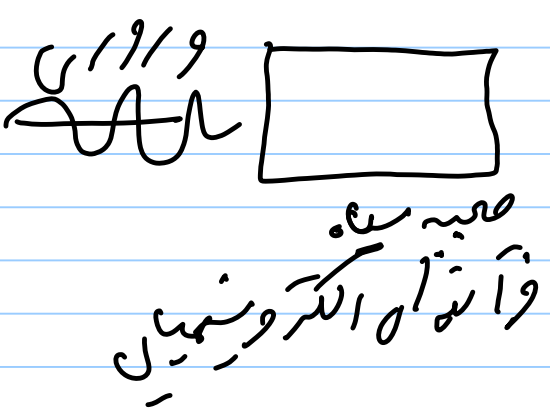 ورودی
جعبه سیاه
فرآیندهای الکتروشیمیایی